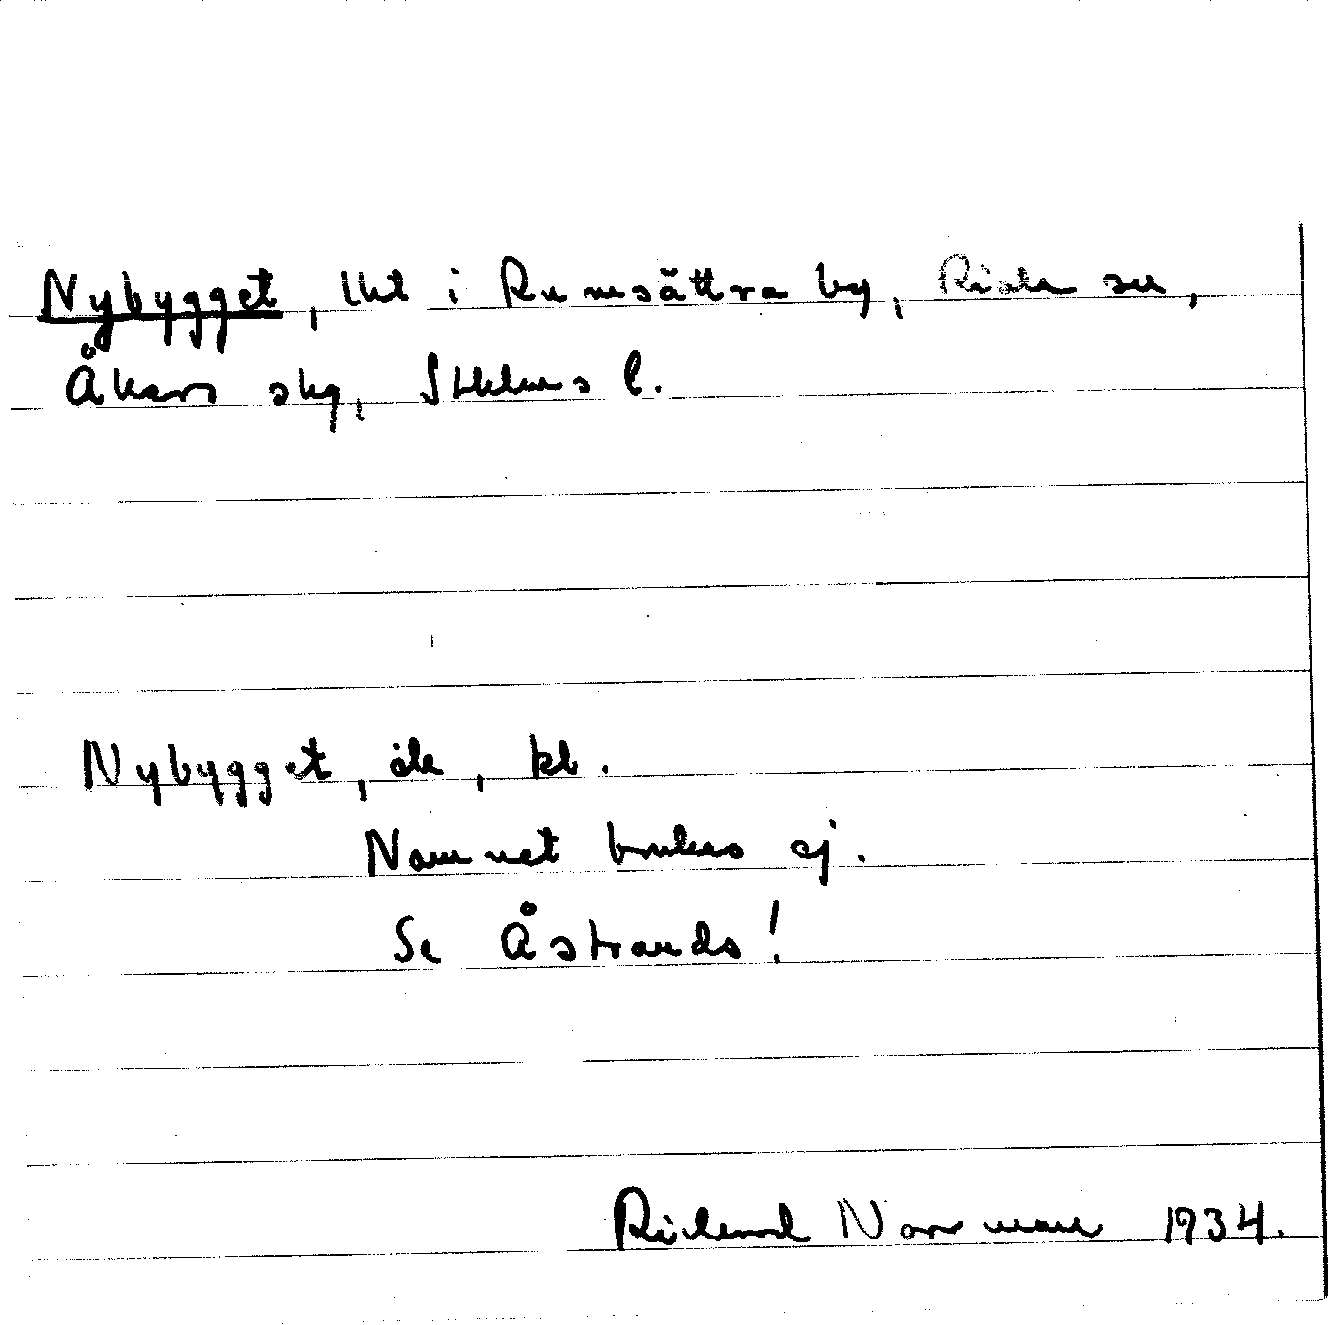 Nybygget, lht i Rumsättra by, Riala sn,
Åkers skg, Sthlms l.
Nybygget, äle, kb.
Namnet brukas ej.
Se Åstrands!
Rickard Norrman 1934.